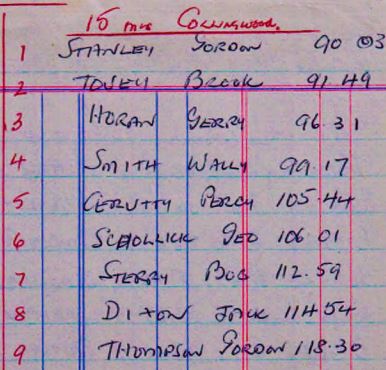 15 mls Collingwood.
1 STANLEY GORDON 90 03
2 TOVEY BROOK 91.49
3 HORAN GERRY 96.31
4 SMITH WALLY 99.17
5 CERUTTY PERCY 105.44
6 SCHOLLICK GEO 106.01
7 STERRY BOB 112.59
8 DIXON JACK 114 54
9 THOMPSON GORDON 118.30